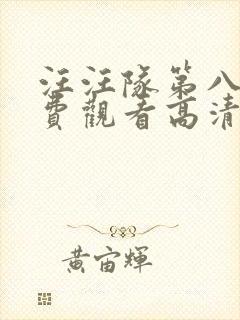 汪汪隊第八
費觀看高清
黃宙輝